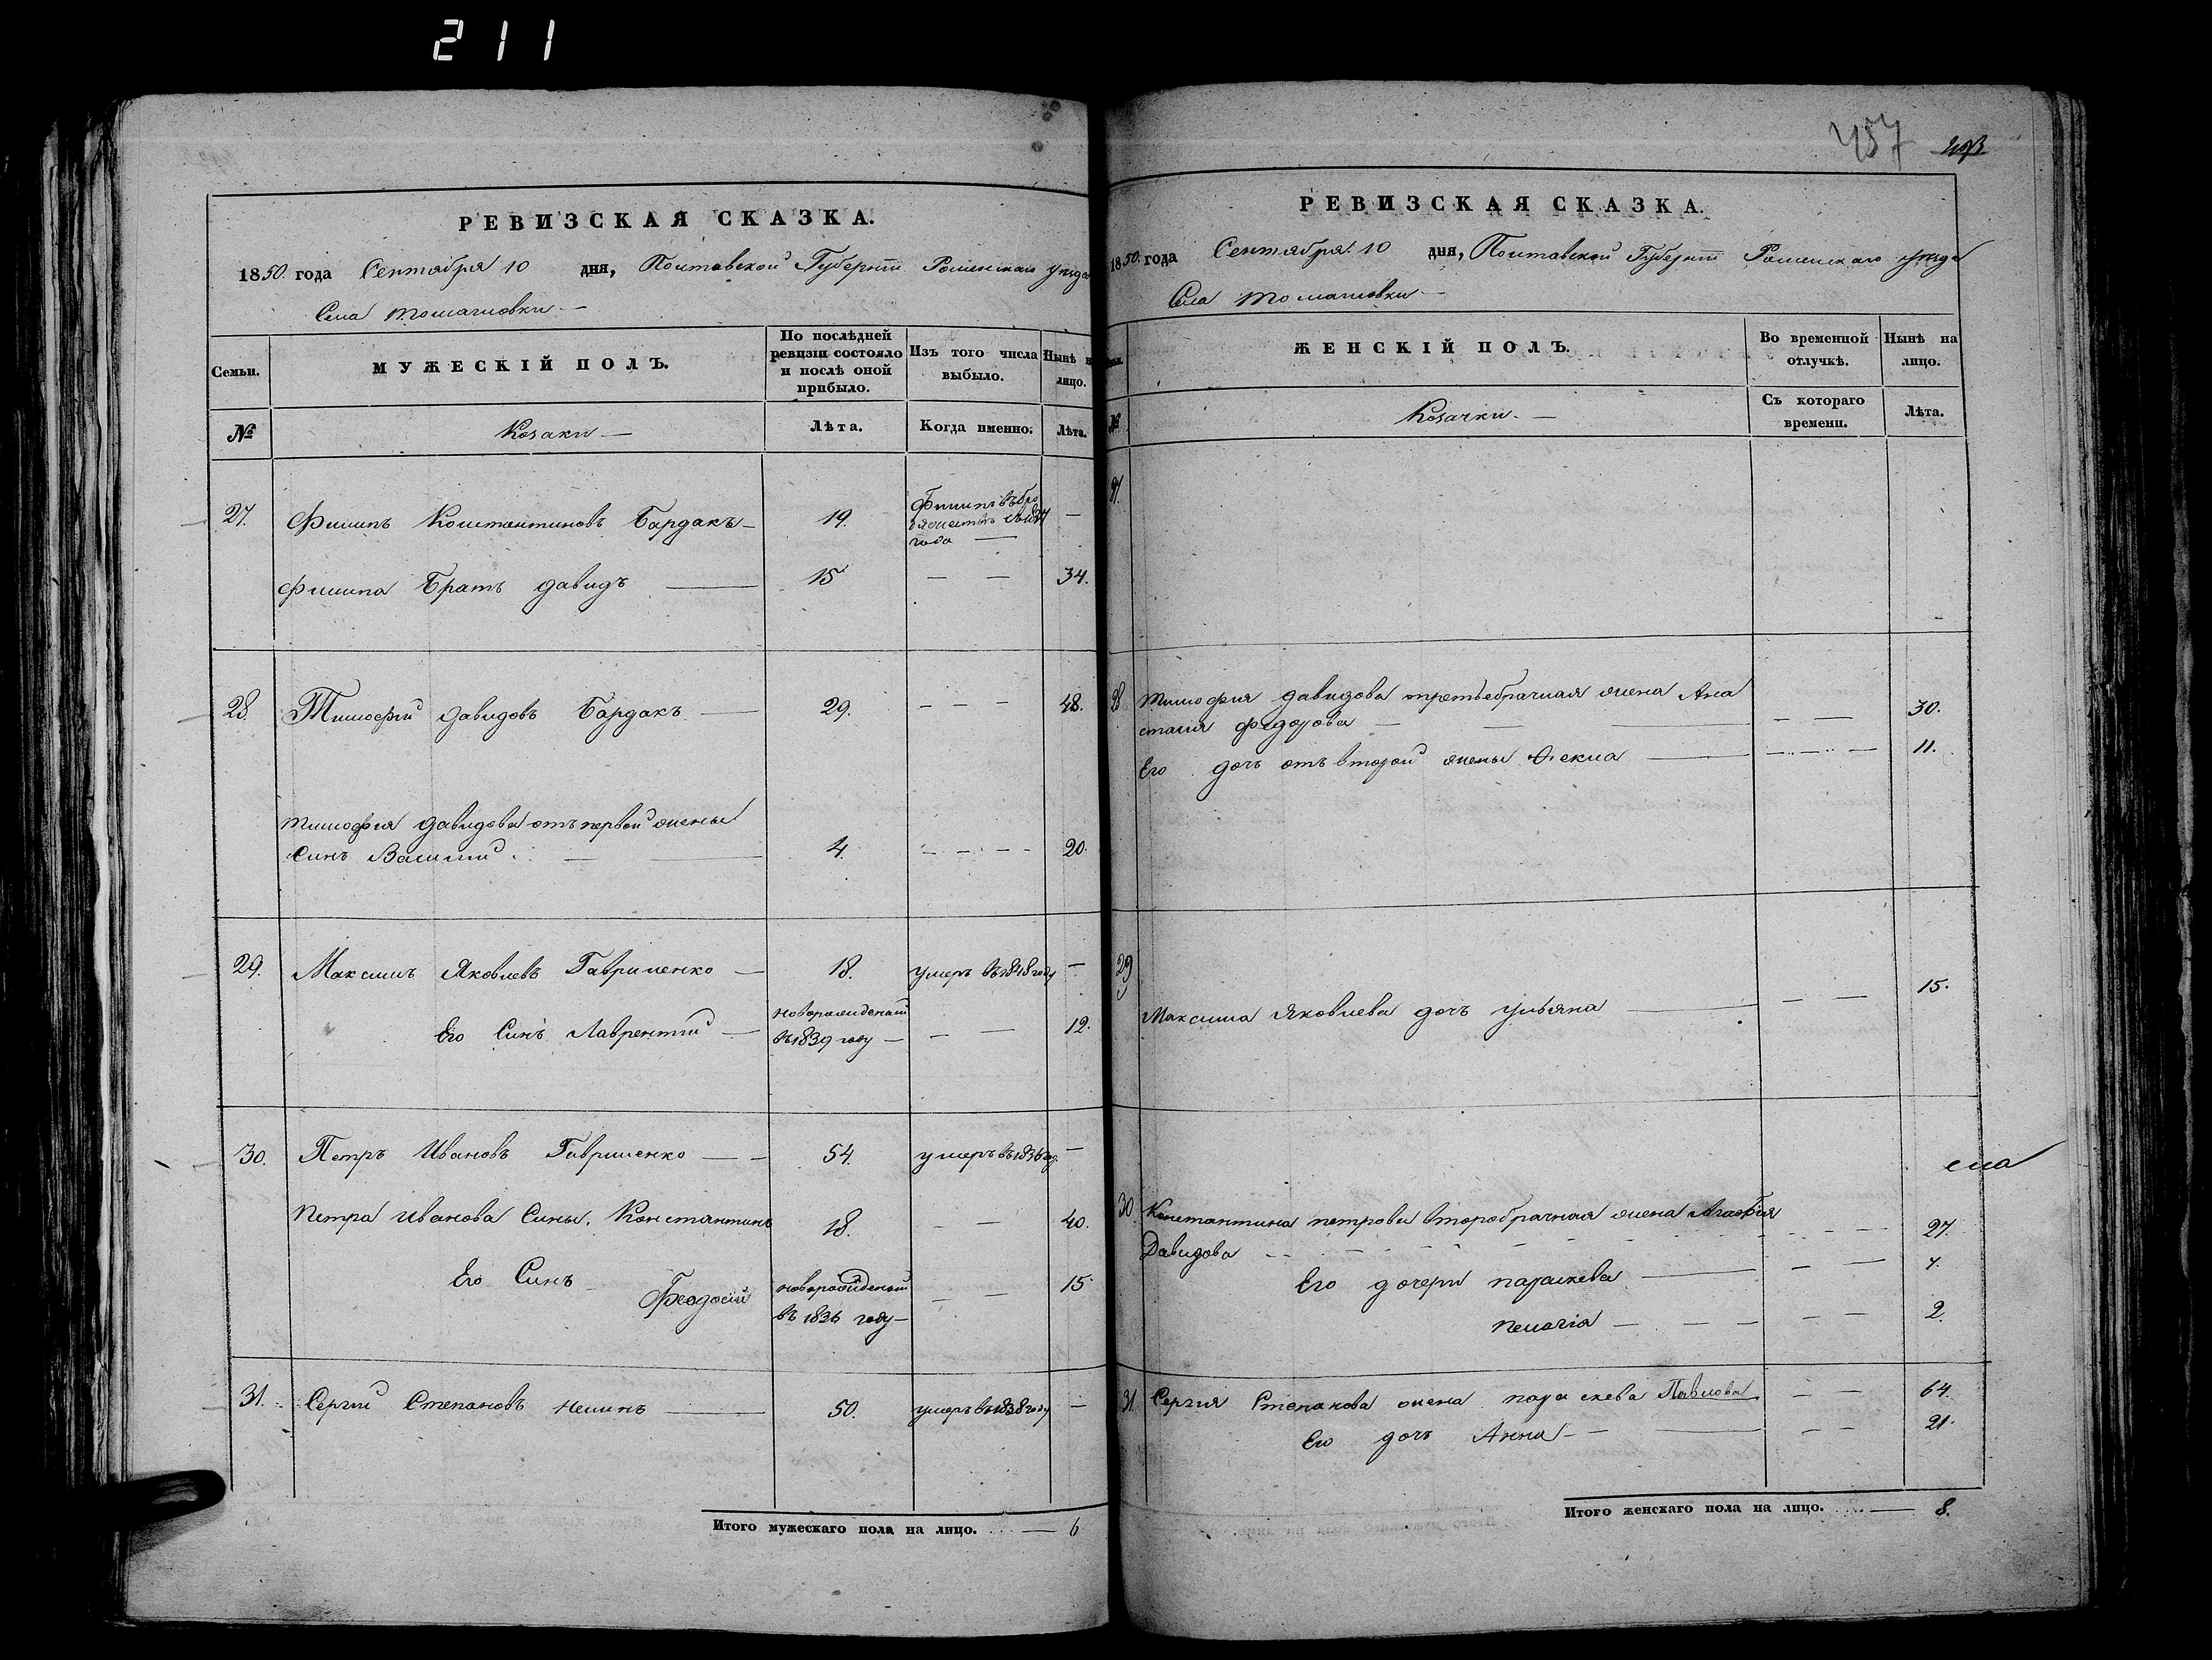 211
457
РЕВИЗСКАЯ СКАЗКА.
1850. года Сентября 10 дня, Полтавской Губерніи Роменскаго уезда
Села Томашовки
Семьи.
МУЖЕСКІЙ ПОЛЪ.
По послѣдней ревизіи состояло и послѣ оной прибыло.
Изъ того числа выбыло.
Нынѣ на лицо.
№
Козаки
Лѣта.
Когда именно.
Лѣта.
27. Филипъ Константиновъ Бардакъ 19. Филипъ года
Филипа Братъ Давидъ 15 34.
28. Тимофій Давидовъ Бардакъ 29. 48.
Тимофія Давидова отъ первой жены
Синъ Василий 4. 20.
29. Максимъ Яковлевъ Гавриленко 18. умеръ въ 1848 году
Его Синъ Лаврентий новорожденый въ 1839 году 12.
30. Петръ Ивановъ Гавриленко 54. умеръ въ 1836 год
Петра Иванова Сины. Константинъ 18. 40.
Его Синъ Феодосій новорожденый въ 1836 году 15.
31. Сергій Степановъ 50. умеръ въ 1838 году
Итого мужескаго пола на лицо. 6
РЕВИЗСКАЯ СКАЗКА.
1850. года Сентября 10 дня, Полтавской Губерніи Роменскаго уезда
Села Томашовки
ЖЕНСКІЙ ПОЛЪ.
Во временной отлучкѣ.
Нынѣ на лицо.
№
Козачки
Съ котораго времени.
Лѣта.
27.
28 Тимофія Давидова третьебрачная жена Ана
стасия Федорова 30.
Его дочъ отъ второй жены Фекла 11.
29
Максима Яковлева дочъ Ульяна 15.
30. Константина Петрова второбрачная жена Агафия
Давидова 27.
Его дочери Параскева
Пелагія 2.
31. Сергія Степанова жена Параскева Павлова 64.
Его дочъ Анна 21.
Итого женскаго пола на лицо. 8.